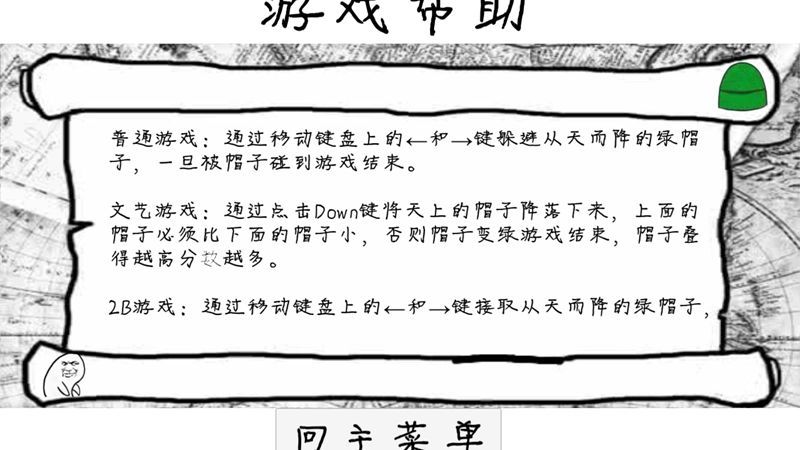 游戏帮助
普通游戏：通过移动键盘上的←和→键躲避从天而降的绿帽
子，一旦被帽子碰到游戏结束。
文艺游戏：通过点击Down键将天上的帽子降落下来，上面的
帽子必须比下面的帽子小，否则帽子变绿游戏结束，帽子叠
得越高分数越多。
2B游戏：通过移动键盘上的←和→键接取从天而降的绿帽子，
回主菜单